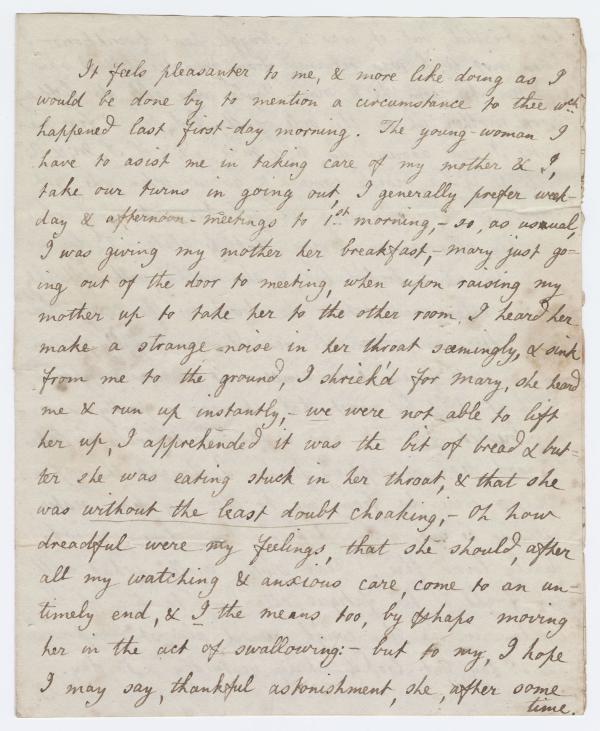 It feels pleasanter to me, & more like doing as I
would be done by to mention a circumstance to thee wch
happened last first-day morning. The young-woman I
have to asist me in taking care of my mother & I,
take our turns in going out, I generally prefer week-
day & afternoon-meetings to 1st morning,- so, as usual,
I was giving my mother her breakfast,- mary just go-
ing out of the door to meeting, when upon raising my
mother up to take her to the other room, I heard her
make a strange noise in her throat seemingly, & sink
from me to the ground, I shriek'd for mary, she heard
me & run up instantly,- we were not able to lift
her up, I apprehended it was the bit of bread & but-
ter she was eating stuck in her throat, & that she
was without the least doubt choaking;- Oh how
dreadful were my feelings, that she should, after
all my watching & anxious care, come to an un-
timely end, & I the means too, by phaps moving
her in the act of swallowing:- but to my, I hope
I may say, thankful astonishment, she, after some
time.